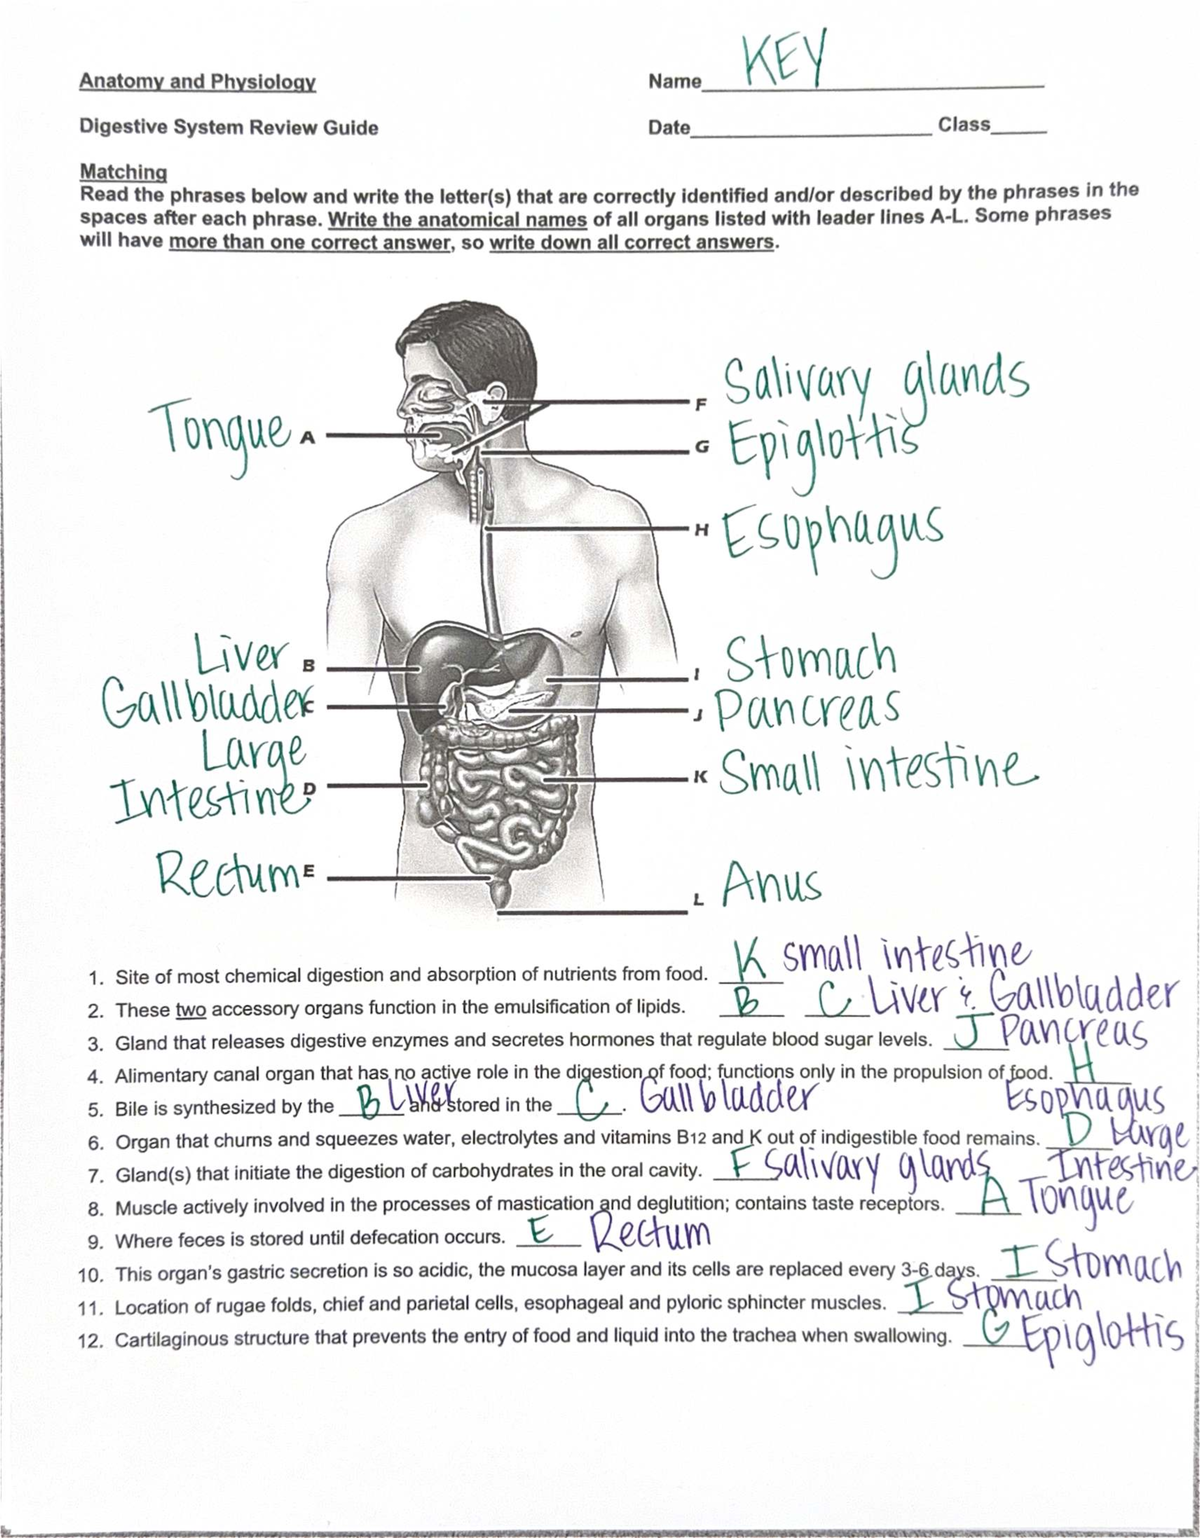 Anatomy and Physiology Name KEY
Digestive System Review Guide Date Class
Matching
Read the phrases below and write the letter(s) that are correctly identified and/or described by the phrases in the
spaces after each phrase. Write the anatomical names of all organs listed with leader lines A-L. Some phrases
will have more than one correct answer, so write down all correct answers.
F Salivary glands
Tongue A
G Epiglottis
H Esophagus
Liver B
I Stomach
Gallbladder C
J Pancreas
Large
Intestine D
K Small intestine
Rectum E
L Anus
1. Site of most chemical digestion and absorption of nutrients from food. K small intestine
2. These two accessory organs function in the emulsification of lipids. B C Liver & Gallbladder
3. Gland that releases digestive enzymes and secretes hormones that regulate blood sugar levels. J Pancreas
4. Alimentary canal organ that has no active role in the digestion of food; functions only in the propulsion of food. H
Esophagus
5. Bile is synthesized by the B Liver and stored in the C. Gallbladder
6. Organ that churns and squeezes water, electrolytes and vitamins B12 and K out of indigestible food remains. D Large
Intestine
7. Gland(s) that initiate the digestion of carbohydrates in the oral cavity. F Salivary glands
8. Muscle actively involved in the processes of mastication and deglutition; contains taste receptors. A Tongue
9. Where feces is stored until defecation occurs. E Rectum
10. This organ's gastric secretion is so acidic, the mucosa layer and its cells are replaced every 3-6 days. I Stomach
11. Location of rugae folds, chief and parietal cells, esophageal and pyloric sphincter muscles. I Stomach
12. Cartilaginous structure that prevents the entry of food and liquid into the trachea when swallowing. G Epiglottis